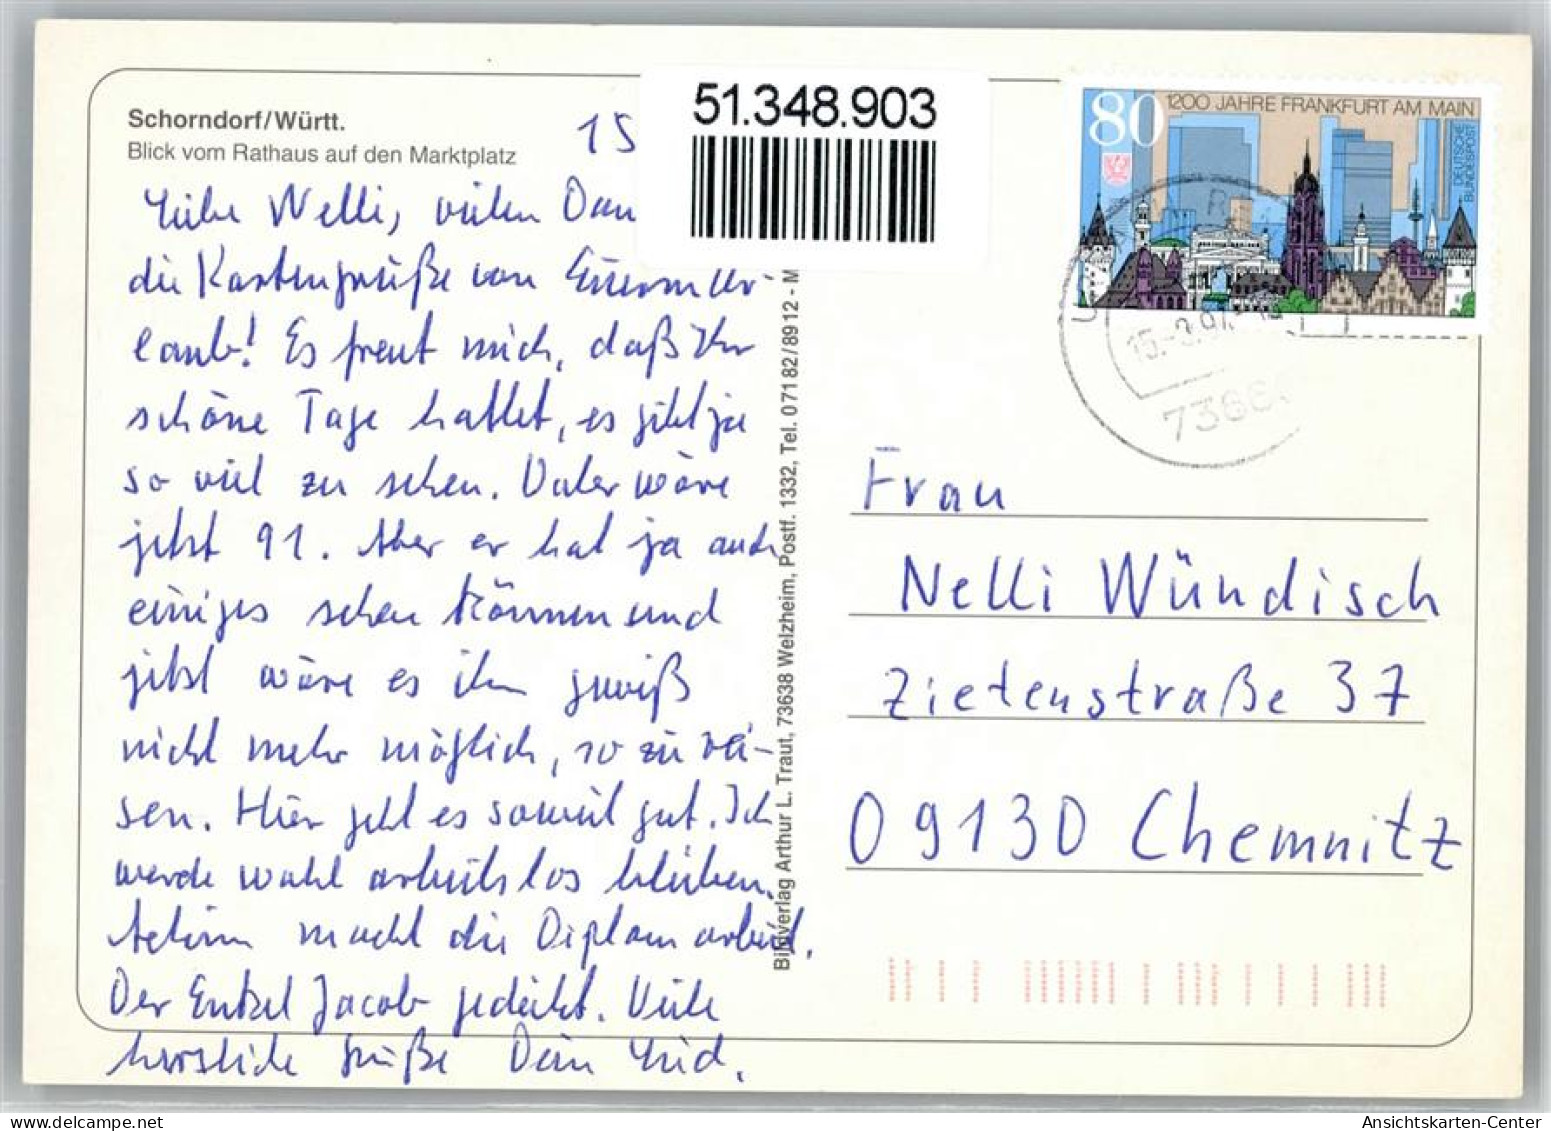 Schorndorf/Württ.
Blick vom Rathaus auf den Marktplatz
15
51.348.903
Liebe Nelli, vielen Dan
die Kartengrüße von Eurem Ur-
laub! Es freut mich, daß Ihr
schöne Tage hattet, es gibt ja
so viel zu sehen. Vater wäre
jetzt 91. Aber er hat ja auch
einiges sehen können und
jetzt wäre es ihm gewiß
nicht mehr möglich, so zu rei-
sen. Hier geht es soweit gut. Ich
werde wohl arbeitslos bleiben.
macht die Diplomarbeit.
Der Enkel Jacob gedeiht. Viele
herzliche Grüße Dein
Bildverlag Arthur L. Traut, 73638 Welzheim, Postf. 1332, Tel. 07182/8912 - M
80
1200 JAHRE FRANKFURT AM MAIN
DEUTSCHE
BUNDESPOST
7366
Frau
Nelli Wündisch
Zietenstraße 37
09130 Chemnitz
Ansichtskarten-Center